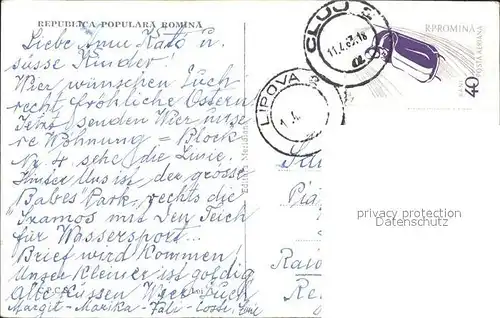 REPUBLICA POPULARA ROMINA
Liebe Anni Kato u.
süsse Kinder!
Wier wünschen Euch
recht fröhliche Ostern
Jetzt senden Wier unse
re Wohnung = Block
Nr. 4 sehe die Linie.
Hinter Uns ist der grosse
"Babes" Park, rechts die
Szamos mit Den Teich
für Wassersport...
Brief wird kommen!
Unser kleiner ist goldig
Alle Küssen Wier Euch
Margit - Marika - Fali -
Editura Meridiane
CLUJ 2
11.4.62.18
LIPOVA
RPROMINA
POSTA AERIANA
40
BANI
privacy protection
Datenschutz